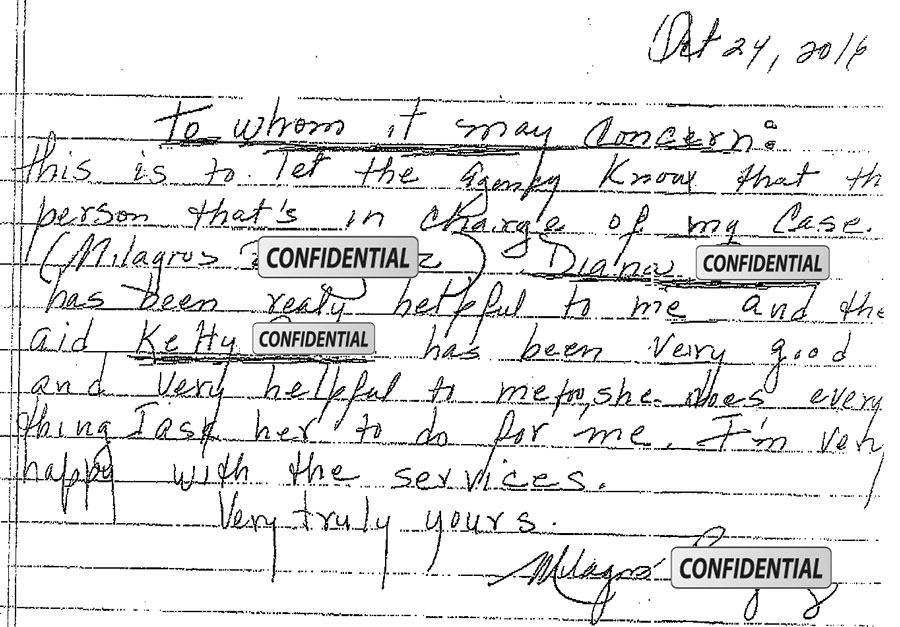 Oct 24, 2016
To whom it may Concern:
this is to let the agency Know that th
person that's in charge of my Case.
(Milagros CONFIDENTIAL z) Diana CONFIDENTIAL
has been realy helpful to me and the
aid Ketty CONFIDENTIAL has been very good
and very helpful to me too, she does every
thing I ask her to do for me. I'm very
happy with the services.
Very truly yours.
Milagros CONFIDENTIAL